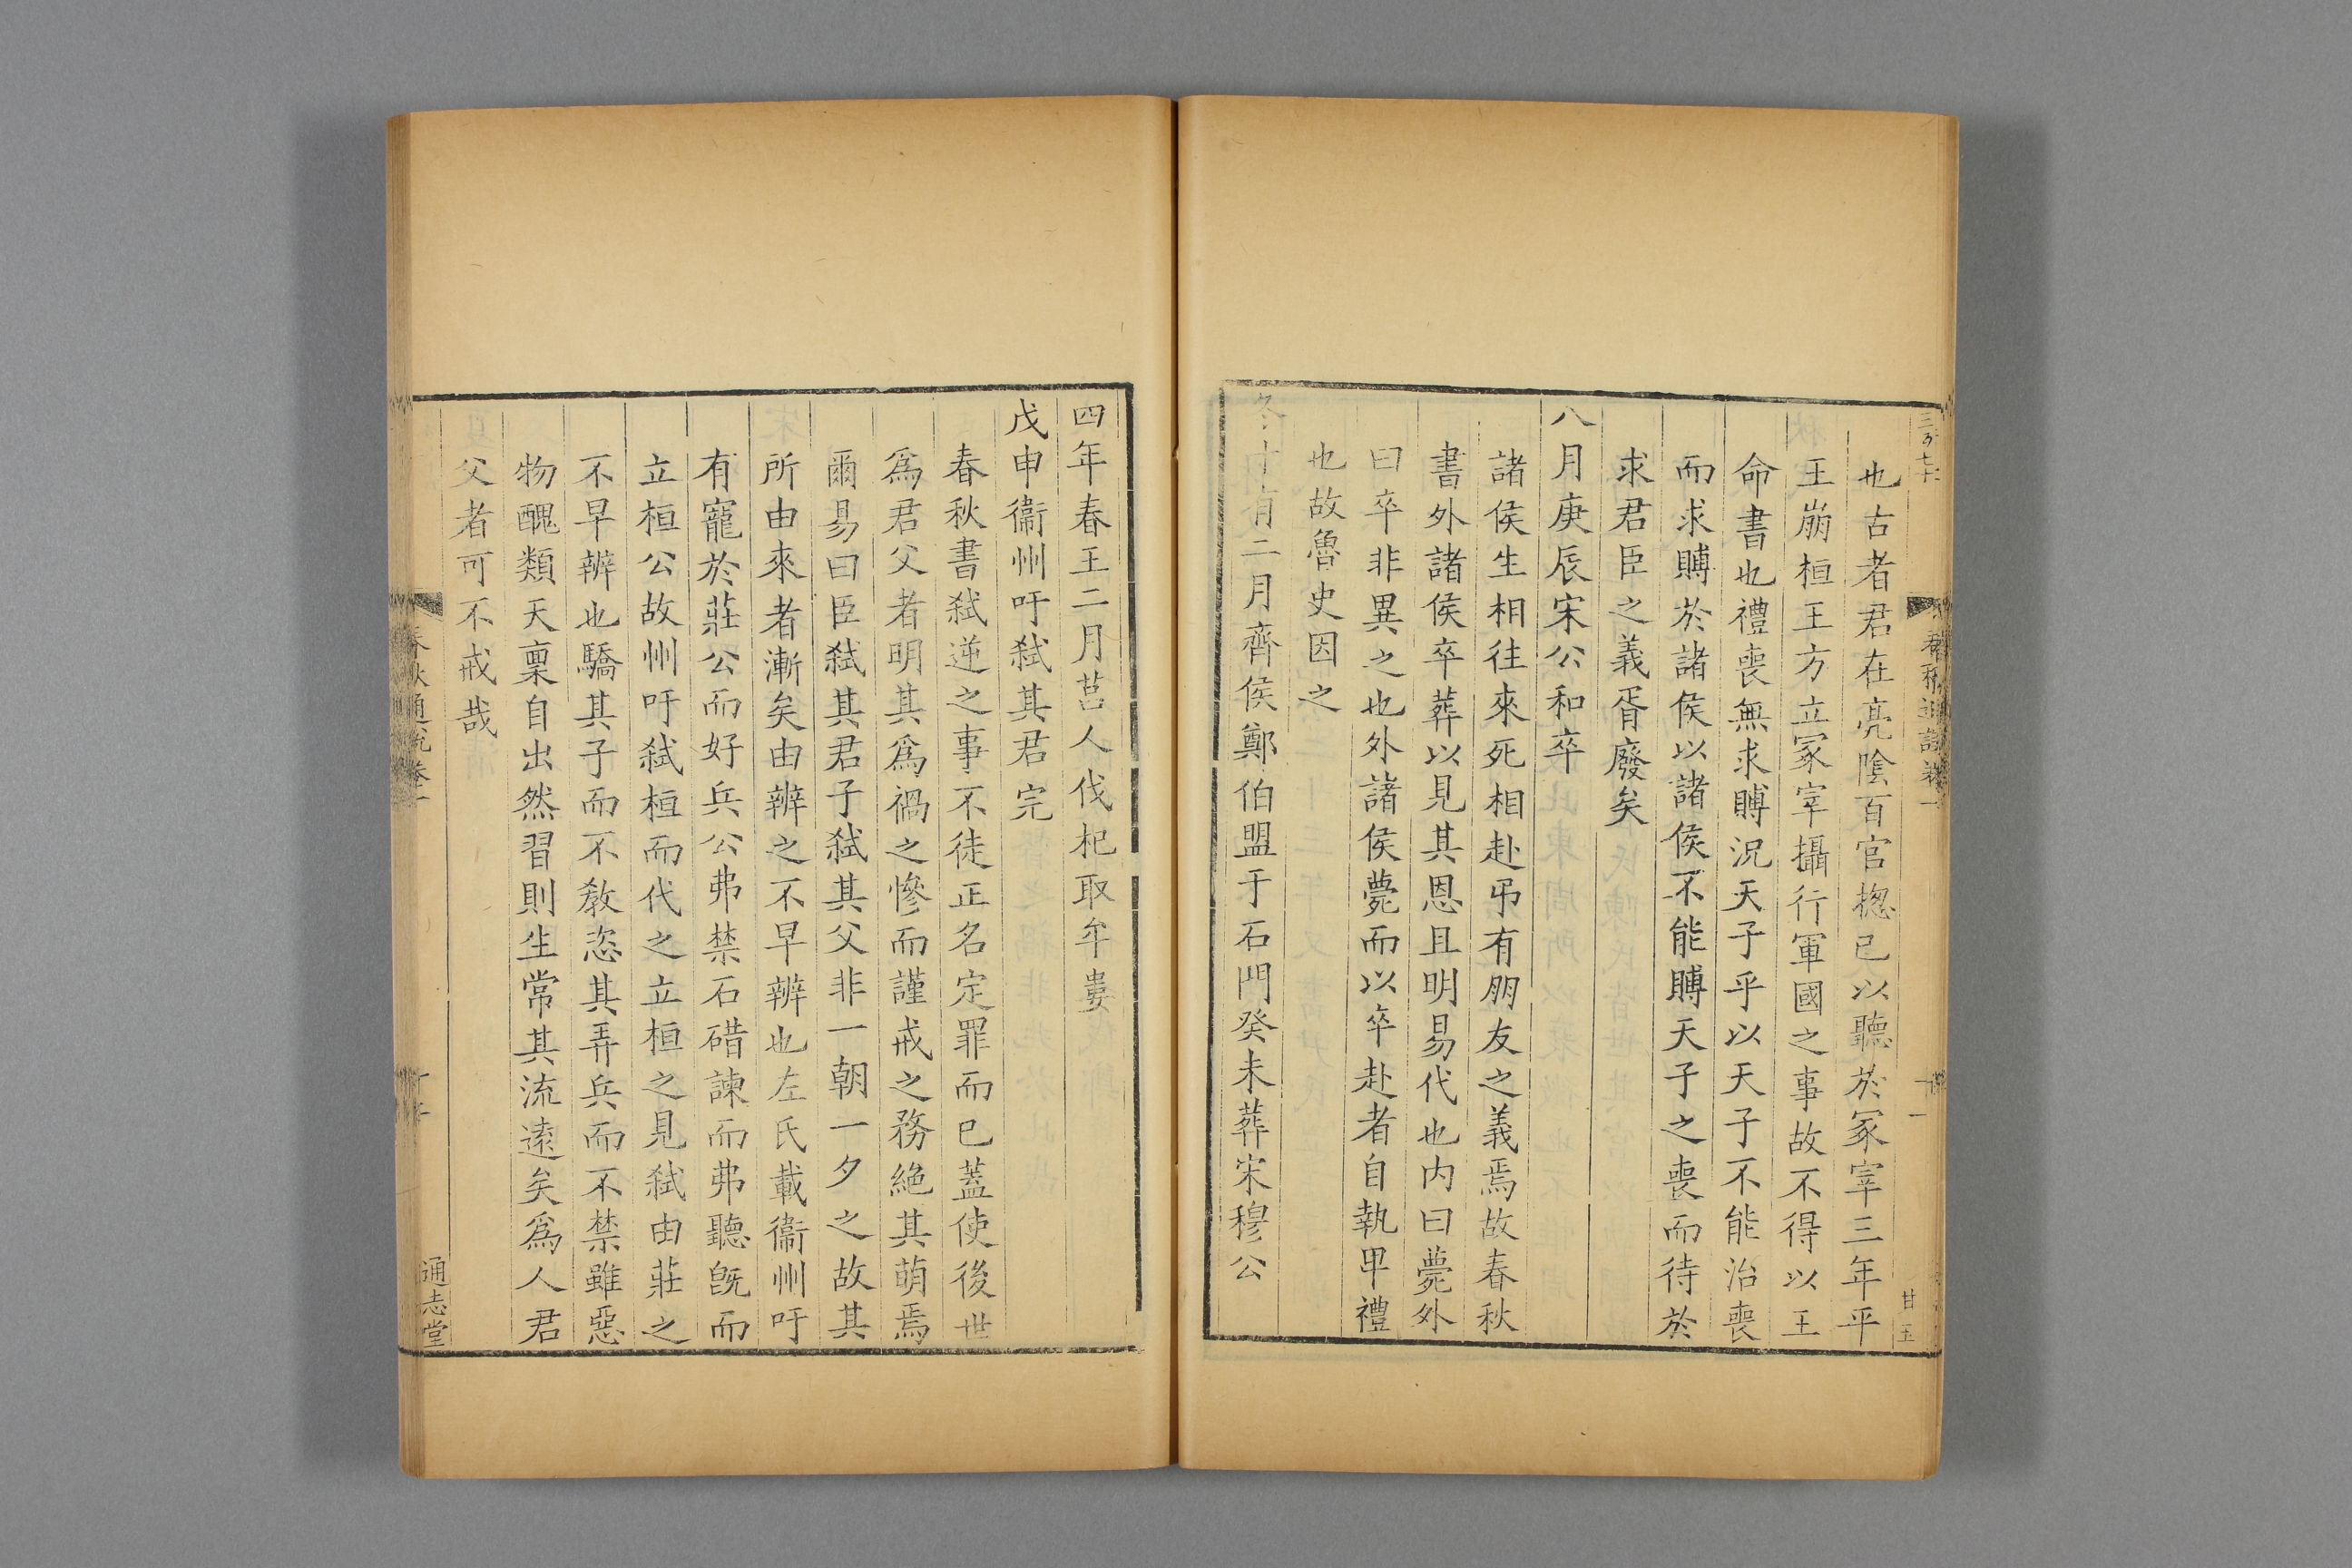 也古者君在亮隂百官揔已以聽於冢宰三年平
王崩桓王方立冢宰攝行軍國之事故不得以王
命書也禮喪無求賻況天子乎以天子不能治喪
而求賻於諸侯以諸侯不能賻天子之喪而待於
求君臣之義胥廢矣
八月庚辰宋公和卒
諸侯生相往來死相赴弔有朋友之義焉故春秋
書外諸侯卒葬以見其恩且明易代也内曰薨外
曰卒非異之也外諸侯薨而以卒赴者自執甲禮
也故魯史因之
冬十有二月齊侯鄭伯盟于石門癸未葬宋穆公
四年春王二月莒人伐杞取牟婁
戊申衞州吁弑其君完
春秋書弑逆之事不徒正名定罪而已蓋使後世
爲君父者明其爲禍之慘而謹戒之務絶其萌焉
爾易曰臣弑其君子弑其父非一朝一夕之故其
所由來者漸矣由辨之不早辨也左氏載衞州吁
有寵於莊公而好兵公弗禁石碏諫而弗聽旣而
立桓公故州吁弑桓而代之立桓之見弑由莊之
不早辨也驕其子而不敎恣其弄兵而不禁雖惡
物醜類天稟自出然習則生常其流遠矣爲人君
父者可不戒哉
春秋通說卷一
通志堂